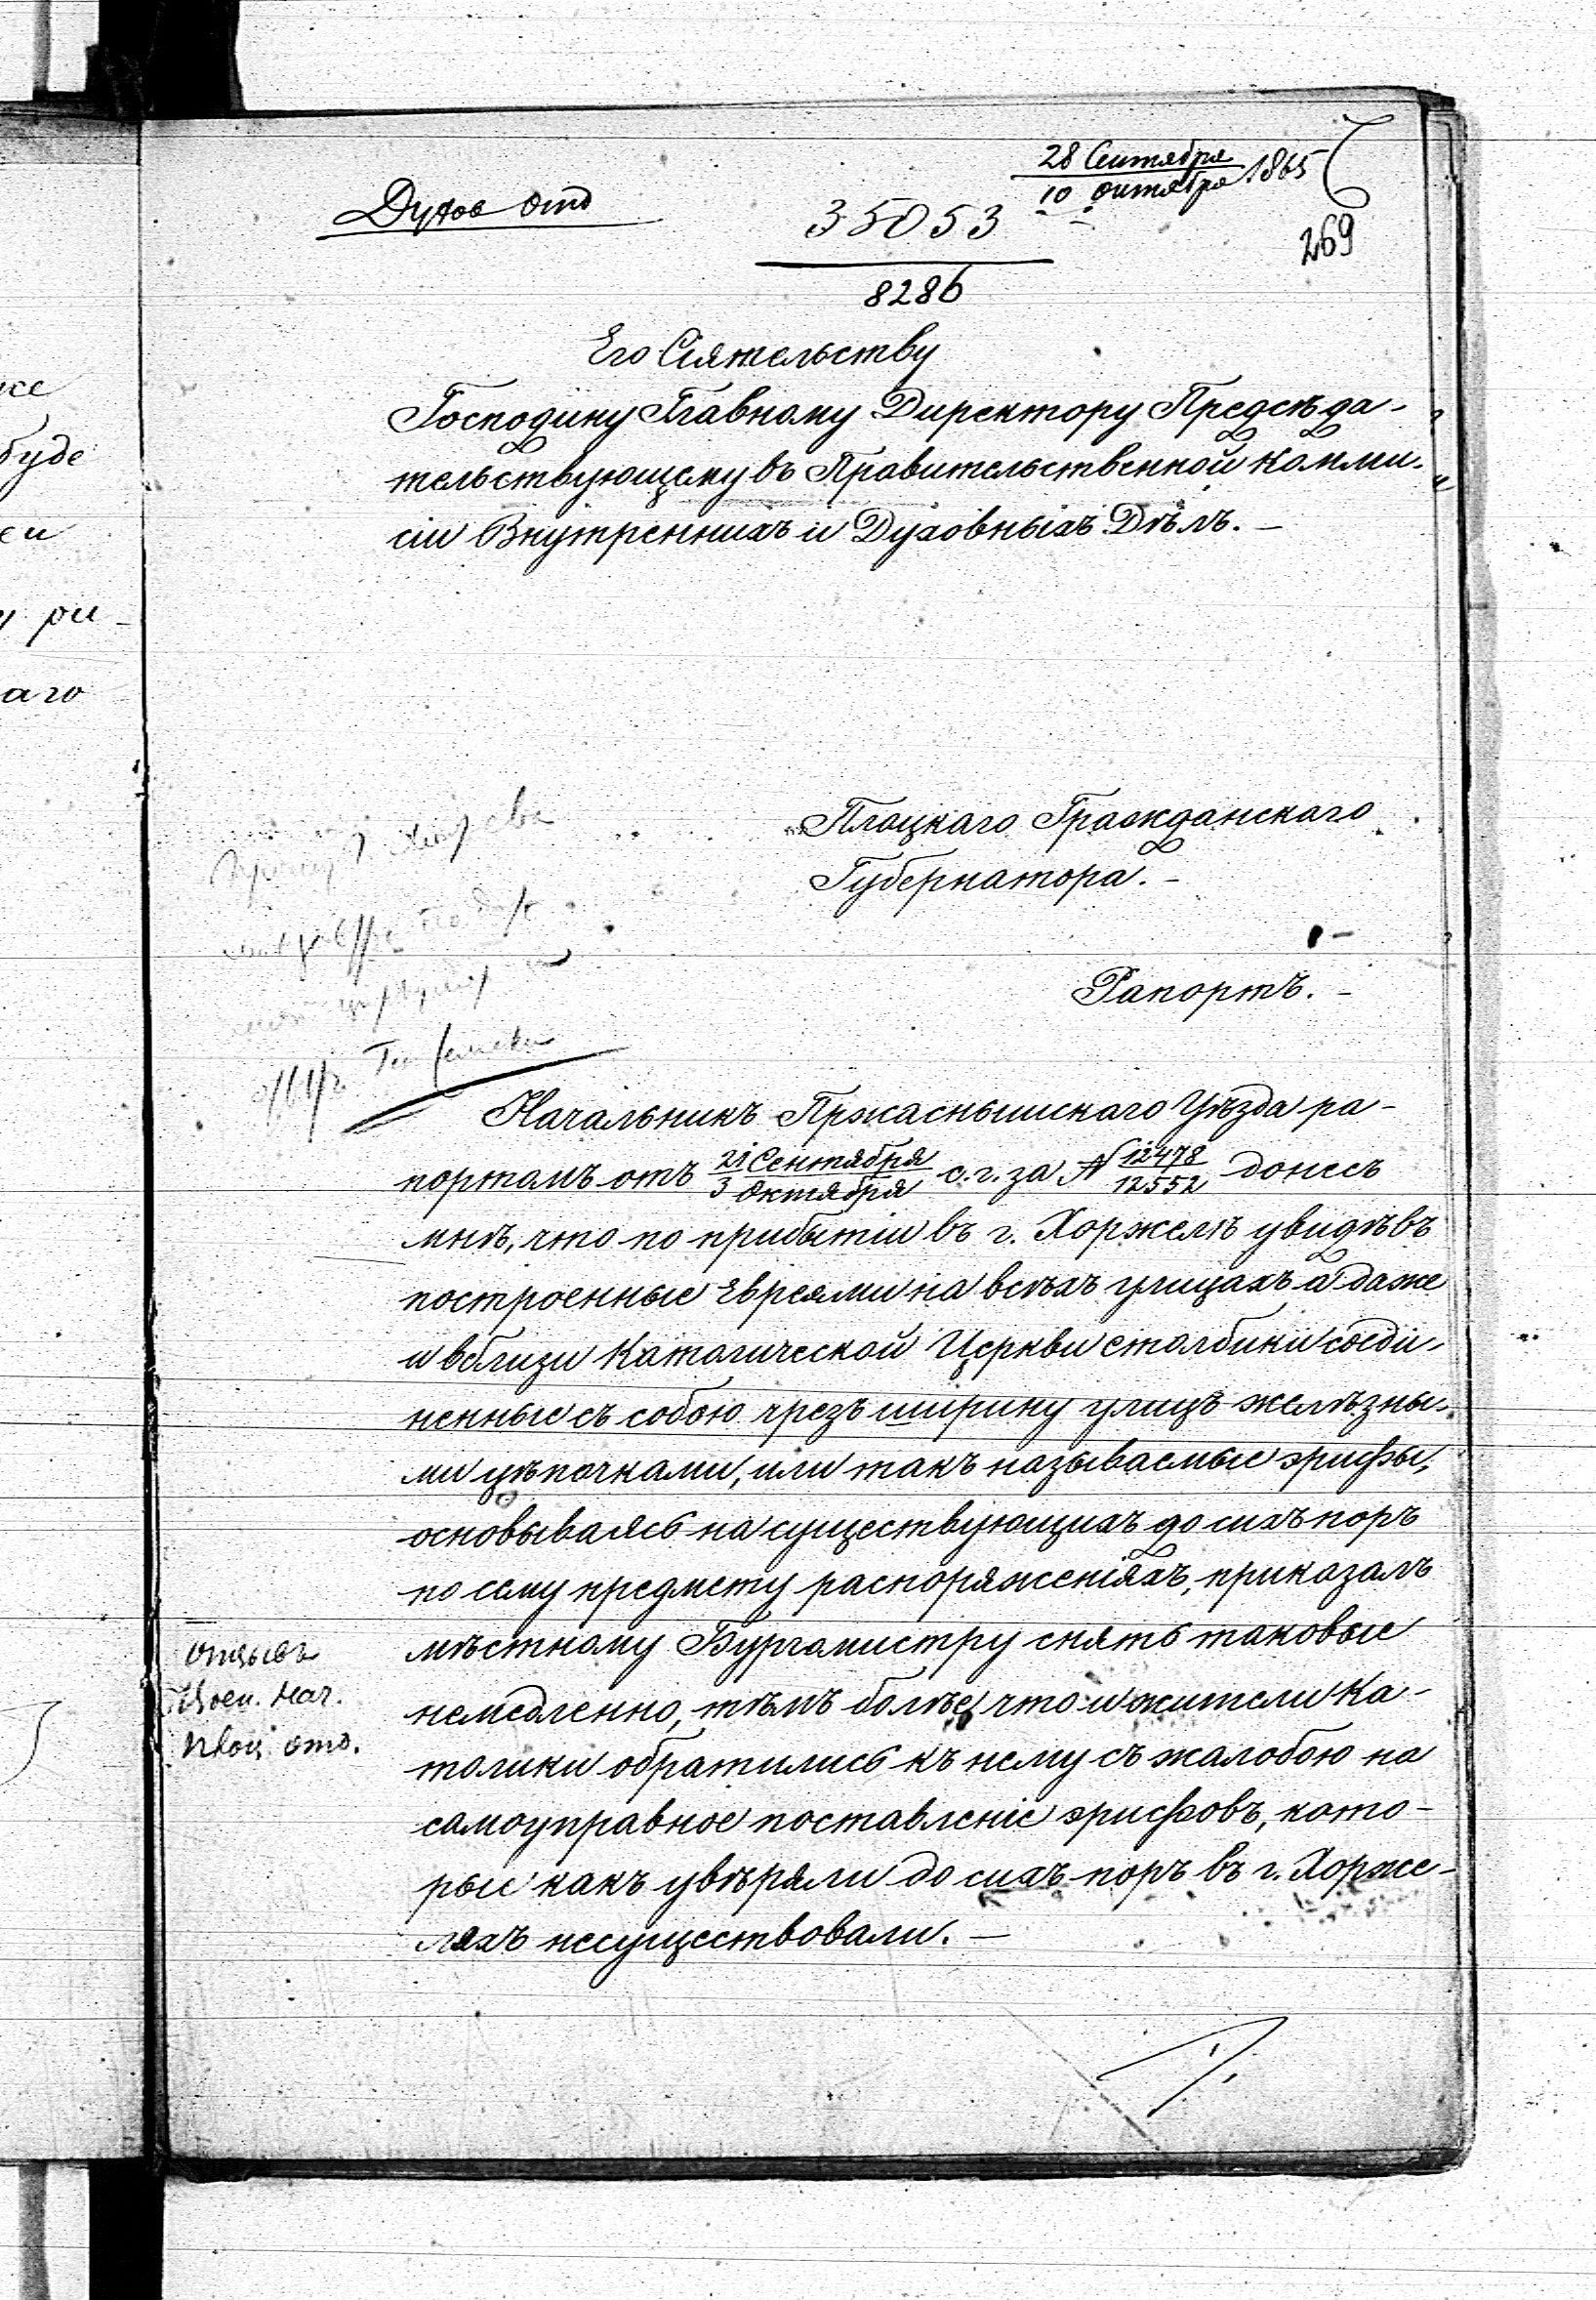 28 Сентября 1865
10 октября
Духов отд
35053
8286
269
Его Сіятельству
Господину Главному Директору Предсѣда-
тельствующему въ Правительственной Комми-
сіи Внутреннихъ и Духовныхъ Дѣлъ. –
Плоцкаго Гражданскаго
Губернатора. –
Рапортъ. –
Начальникъ Пржаснышскаго Уѣзда ра-
портомъ отъ 21 Сентября / 3 Октября с. г. за N 12478 / 12552 донесъ
мнѣ, что по прибытіи въ г. Хоржелѣ увидѣвъ
построенные Евреями на всѣхъ улицахъ а даже
и вблизи Католической Церкви столбики соеди-
ненные съ собою чрезъ ширину улицъ желѣзны-
ми цѣпочками, или такъ называемые эрифы,
основываясь на существующихъ до сихъ поръ
по сему предмету распоряженіяхъ, приказалъ
мѣстному Бургомистру снять таковые
немедленно, тѣмъ болѣе, что и жители Ка-
толики обратились къ нему съ жалобою на
самоуправное поставленіе эрифовъ, кото-
рые какъ увѣряли до сихъ поръ въ г. Хорже-
ляхъ несуществовали. –
отзывъ
Воен. Нач.
отд.
же
буде
ри-
аго